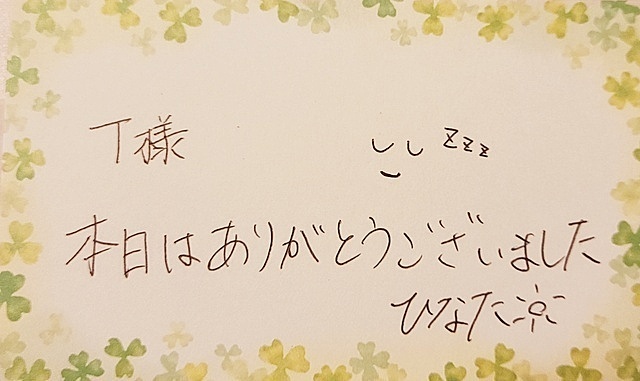 T様
zzz
本日はありがとうございました
ひなた